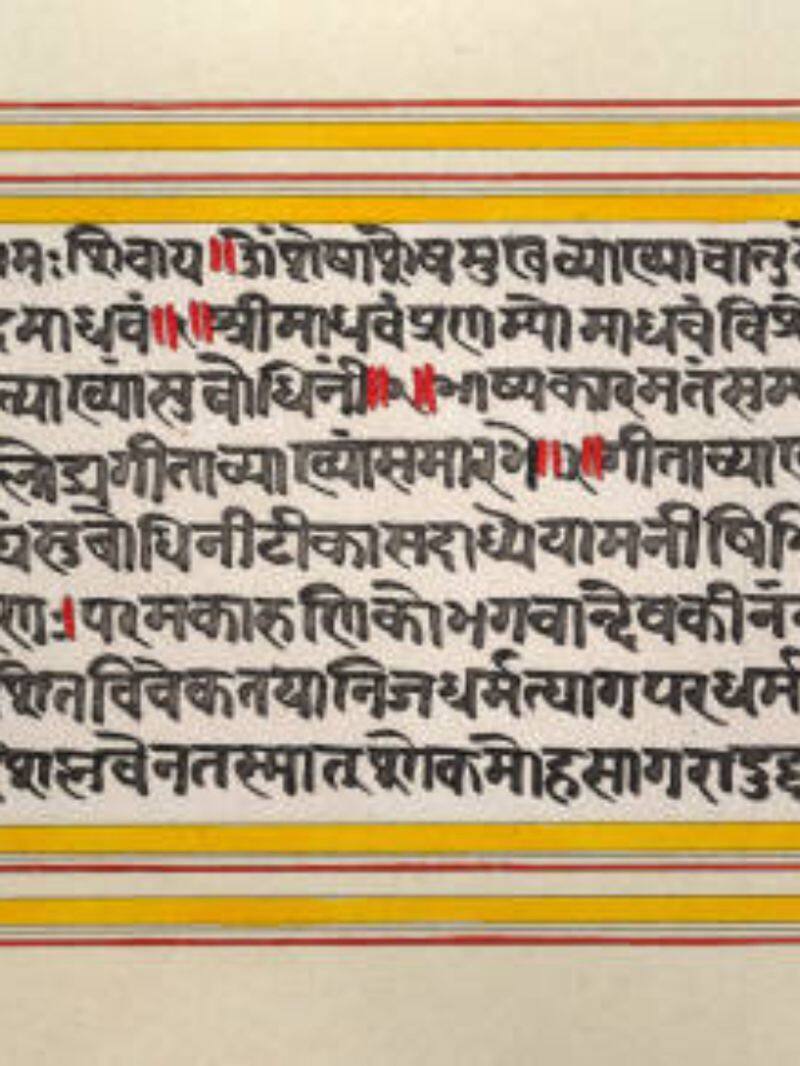 मः शिवाय ॥ ॐ शेषाशेषमुखव्याख्याचातु
माधवं ॥ १ ॥ श्रीमाधवं प्रणम्यो माधवं विश्वे
व्याख्यां सुबोधिनीं ॥ २ ॥ भाष्यकारमतं सम्य
गीताव्याख्यां समारभे ॥ ३ ॥ गीताव्या
सुबोधिनीटीका सदा ध्येया मनीषिभि
परमकारुणिको भगवान्देवकीनं
विवेकतया निजधर्मत्यागपरधर्म
नतस्मात् शोकमोहसागरादुद्ध